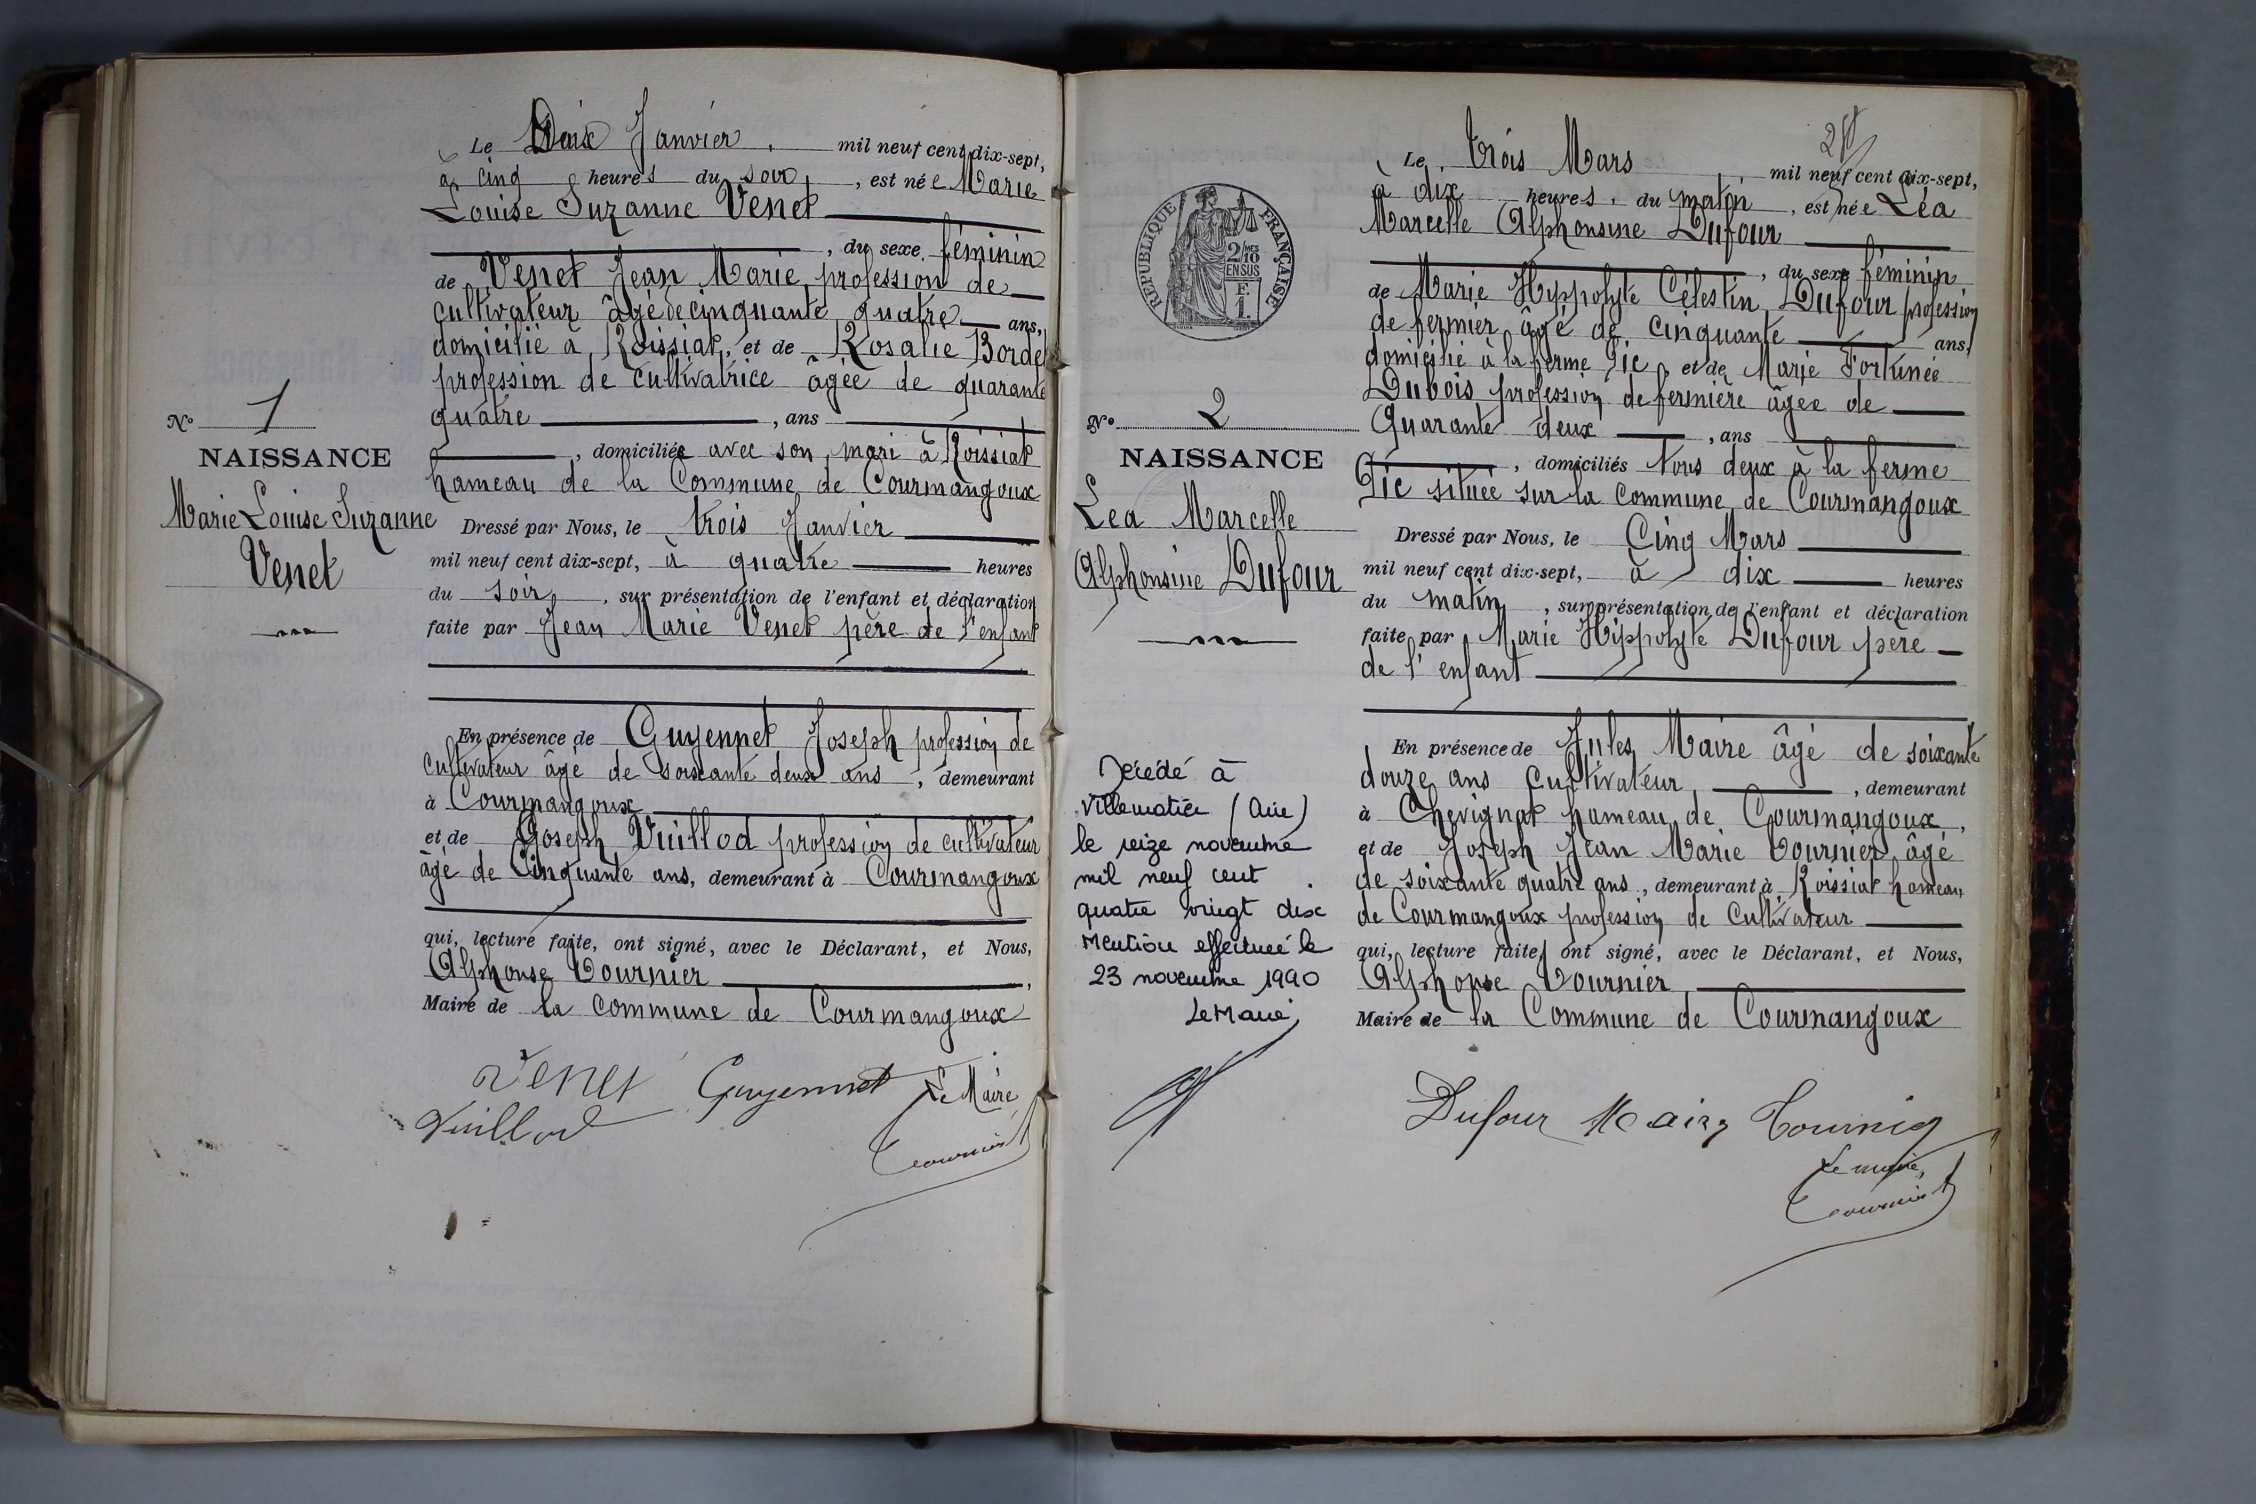 Le Deux Janvier, mil neuf cent dix-sept,
à cinq heures du soir, est née Marie
Louise Suzanne Venet
, du sexe féminin
de Venet Jean Marie, profession de
cultivateur âgé de cinquante quatre ans,
domicilié à Roissiat, et de Rosalie Bordet
profession de cultivatrice âgée de quarante
quatre, ans
, domiciliée avec son mari à Roissiat
hameau de la Commune de Courmangoux
Nº 1
NAISSANCE
Marie Louise Suzanne
Venet
Dressé par Nous, le trois Janvier
mil neuf cent dix-sept, à quatre heures
du soir, sur présentation de l'enfant et déclaration
faite par Jean Marie Venet père de l'enfant
En présence de Guyennet Joseph profession de
cultivateur âgé de soixante deux ans, demeurant
à Courmangoux
et de Joseph Vuillod profession de cultivateur
âgé de Cinquante ans, demeurant à Courmangoux
qui, lecture faite, ont signé, avec le Déclarant, et Nous,
Alphonse Tournier,
Maire de la commune de Courmangoux
Venet Guyennet Le Maire,
Vuillod Tournier
Le trois Mars, mil neuf cent dix-sept,
à dix heures, du matin, est née Léa
Marcelle Alphonsine Dufour
, du sexe féminin
de Marie Hyppolyte Célestin Dufour profession
de fermier âgé de cinquante ans,
domicilié à la ferme Pic, et de Marie Fortunée
Dubois profession de fermière âgée de
Quarante deux, ans
, domiciliés tous deux à la ferme
Pic située sur la commune de Courmangoux
RÉPUBLIQUE FRANÇAISE
2/10 MES
EN SUS
F.
1.
Nº 2
NAISSANCE
Lea Marcelle
Alphonsine Dufour
Dressé par Nous, le Cinq Mars
mil neuf cent dix-sept, à dix heures
du matin, sur présentation de l'enfant et déclaration
faite par Marie Hippolyte Dufour père
de l'enfant
En présence de Jules Maire âgé de soixante
douze ans cultivateur, demeurant
à Chevignat hameau de Courmangoux,
et de Joseph Jean Marie Tournier âgé
de soixante quatre ans, demeurant à Roissiat hameau
de Courmangoux profession de Cultivateur
qui, lecture faite, ont signé, avec le Déclarant, et Nous,
Alphonse Tournier
Maire de la Commune de Courmangoux
Décédé à
Villemotier (Ain)
le seize novembre
mil neuf cent
quatre vingt dix
Mention effectuée le
23 novembre 1990
Le Maire,
Dufour Maire Tournier
Le maire,
Tournier